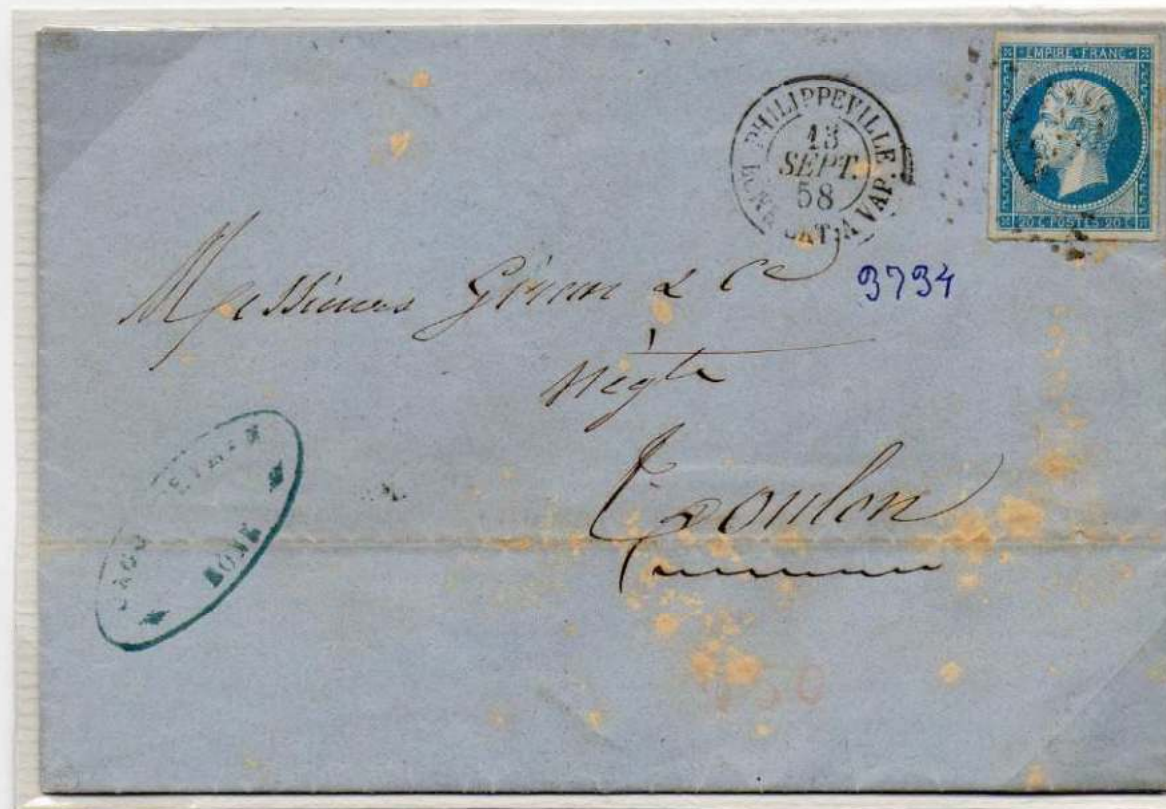 EMPIRE FRANC
20 C POSTES 20 C
PHILIPPEVILLE
13
SEPT.
58
BAT. A VAP.
3794
Messieurs & Cie
Négts
Toulon
BONE